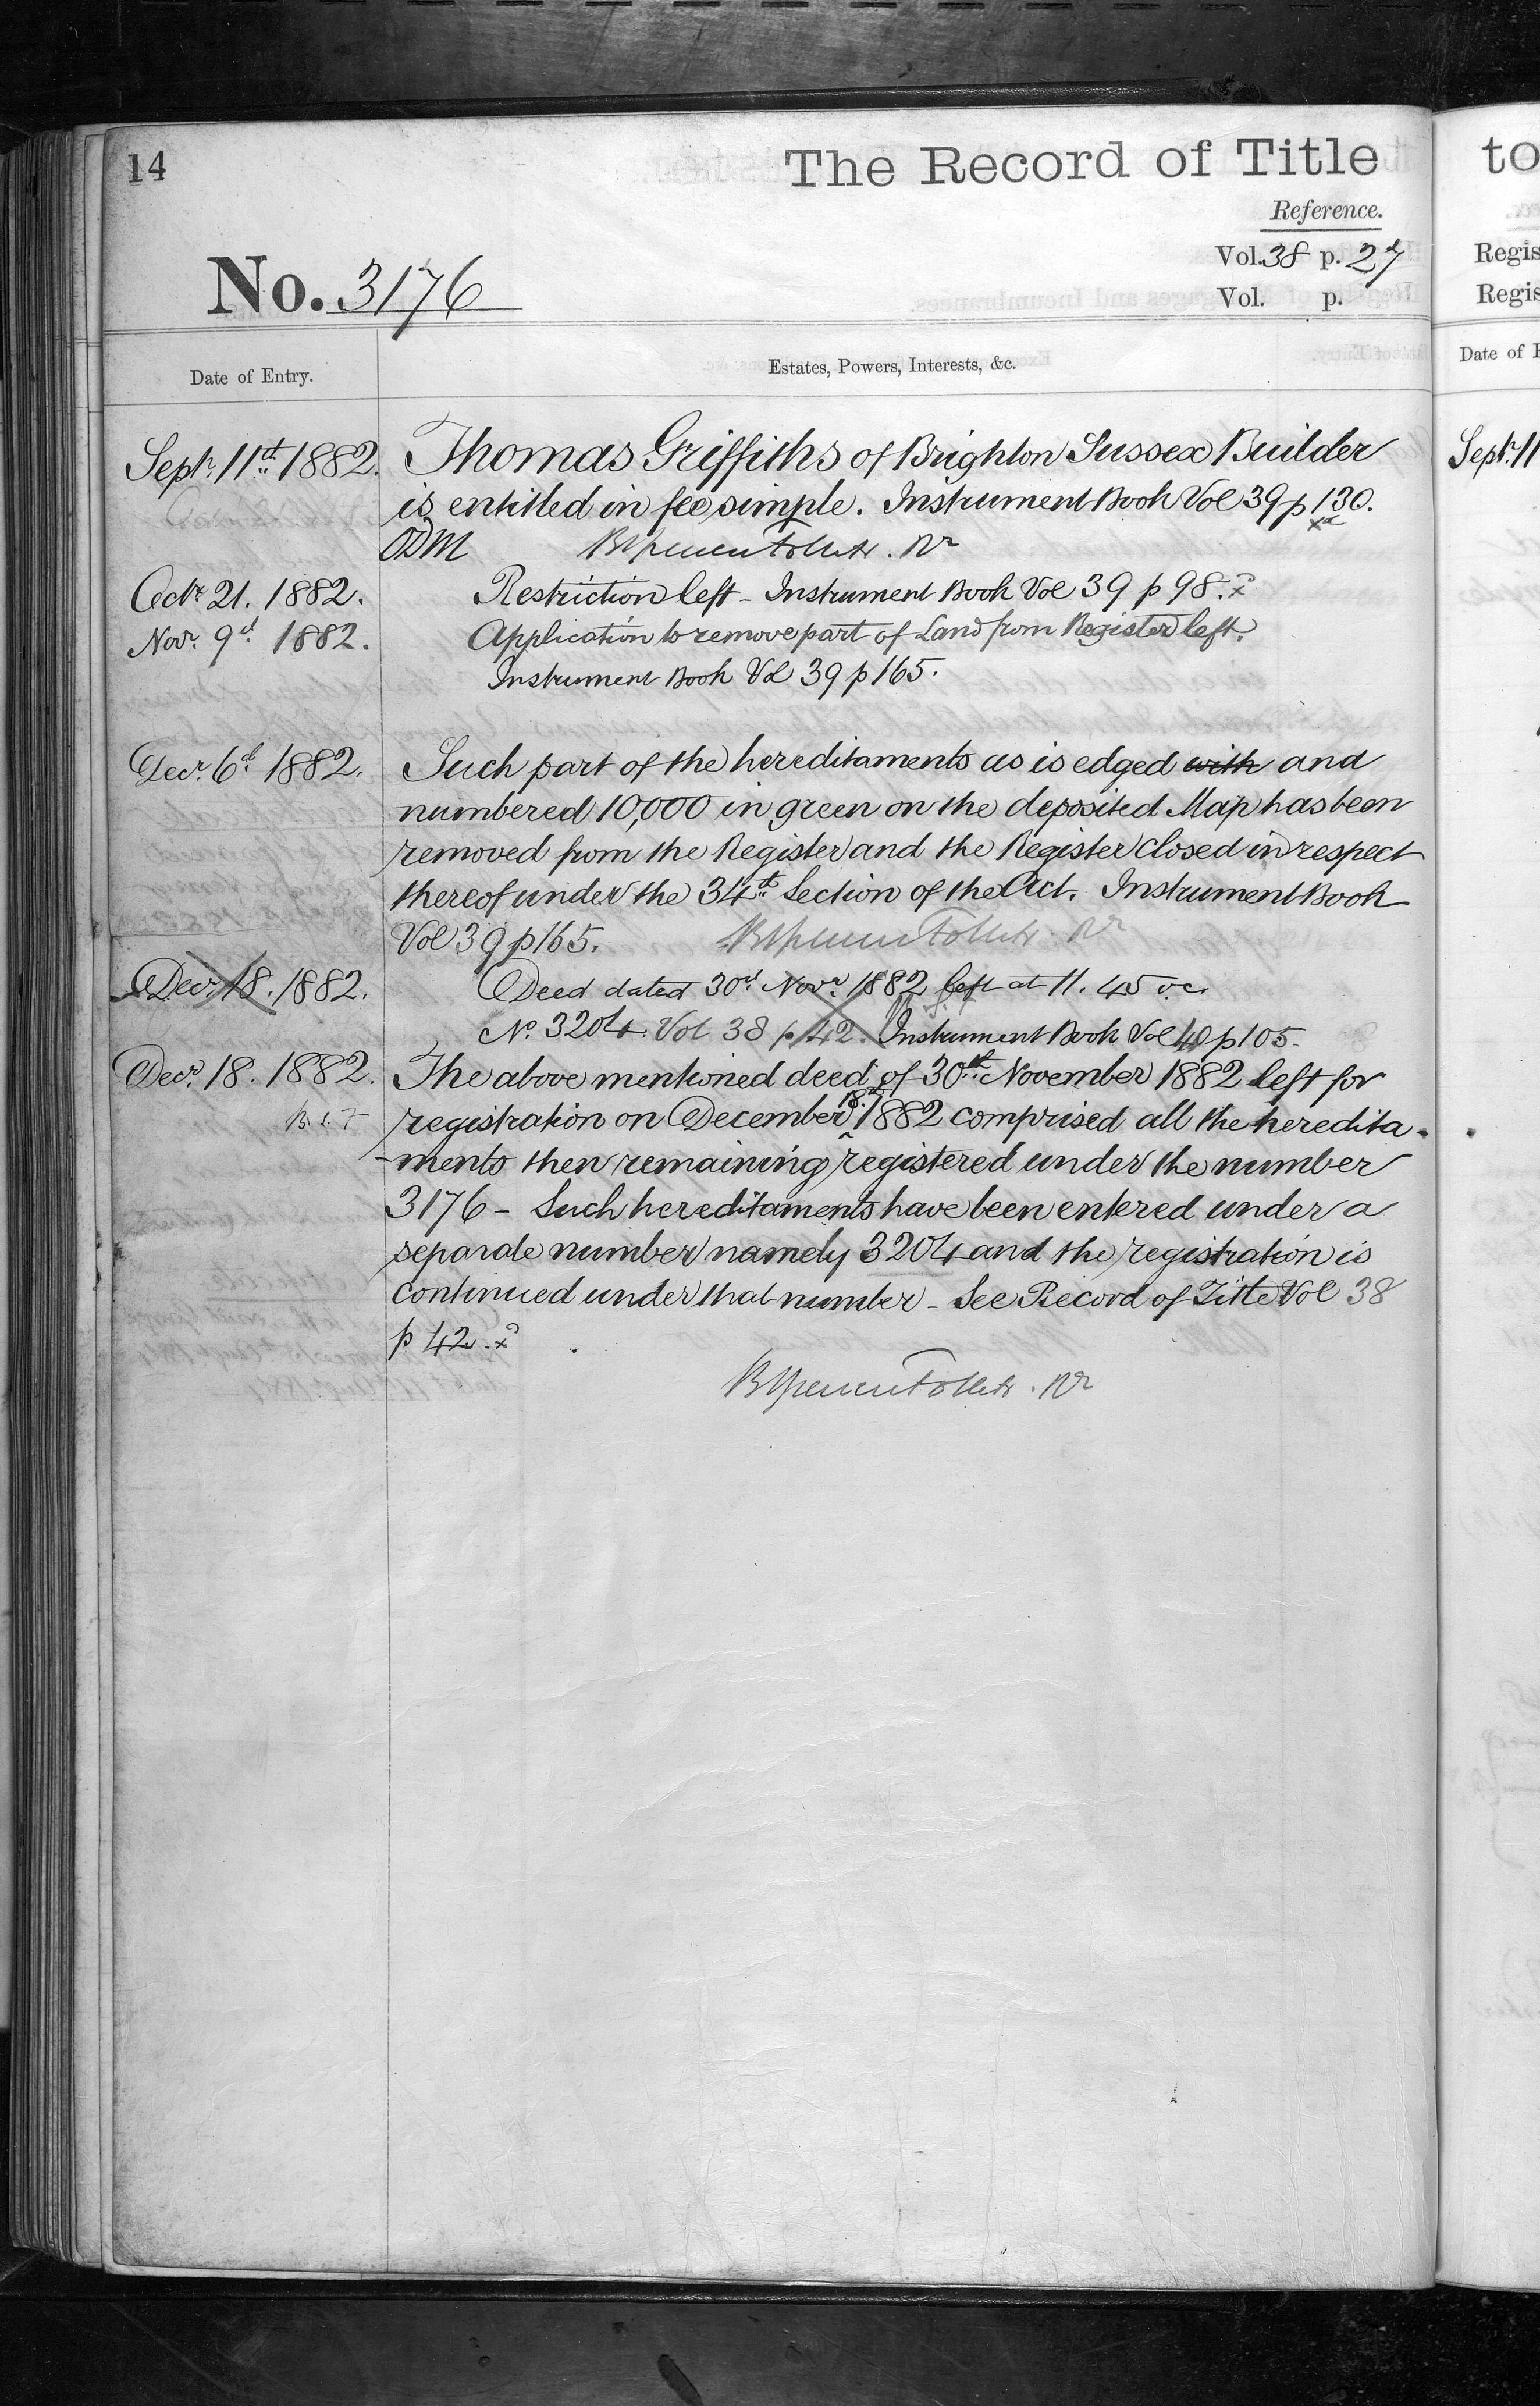 14
The Record of Title
Reference.
Vol. 38 p. 27
No. 3176
Vol. p.
Date of Entry.
Estates, Powers, Interests, &c.
Septr. 11th 1882. Thomas Griffiths of Brighton Sussex Builder
is entitled in fee simple. Instrument Book Vol 39 p 130.
ODM
Octr. 21. 1882. Restriction left - Instrument Book Vol 39 p 98.
Novr. 9th 1882. Application to remove part of Land from Register left.
Instrument Book Vol 39 p 165.
Decr. 6th 1882. Such part of the hereditaments as is edged with and
numbered 10,000 in green on the deposited Map has been
removed from the Register and the Register closed in respect
thereof under the 34th Section of the Act. Instrument Book
Vol 39 p 165.
Decr. 18. 1882. Deed dated 30th Novr. 1882 left at 11.45 oc.
No. 3204. Vol 38 p 42. Instrument Book Vol 40 p 105.
Decr. 18. 1882. The above mentioned deed of 30th November 1882 left for
registration on December 18. 1882 comprised all the heredita-
-ments then remaining registered under the number
3176 - Such hereditaments have been entered under a
separate number namely 3204 and the registration is
continued under that number - See Record of Title Vol 38
p 42.
to
Regis
Regis
Date of E
Septr. 11